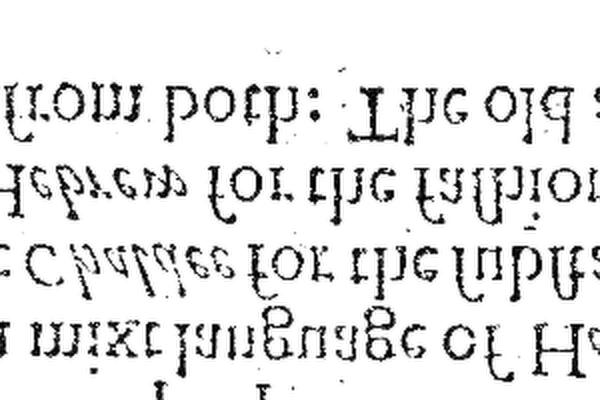 mixt language of He
Chaldee for the ſubſta
Hebrew for the faſhion
from both: The old